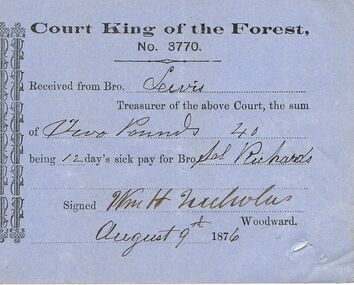 Court King of the Forest,
No. 3770.
Received from Bro. Lewis
Treasurer of the above Court, the sum
of Two Pounds 40
being 12 day's sick pay for Bro Richards
Signed Wm H Nicholas
Woodward.
August 9th 1876